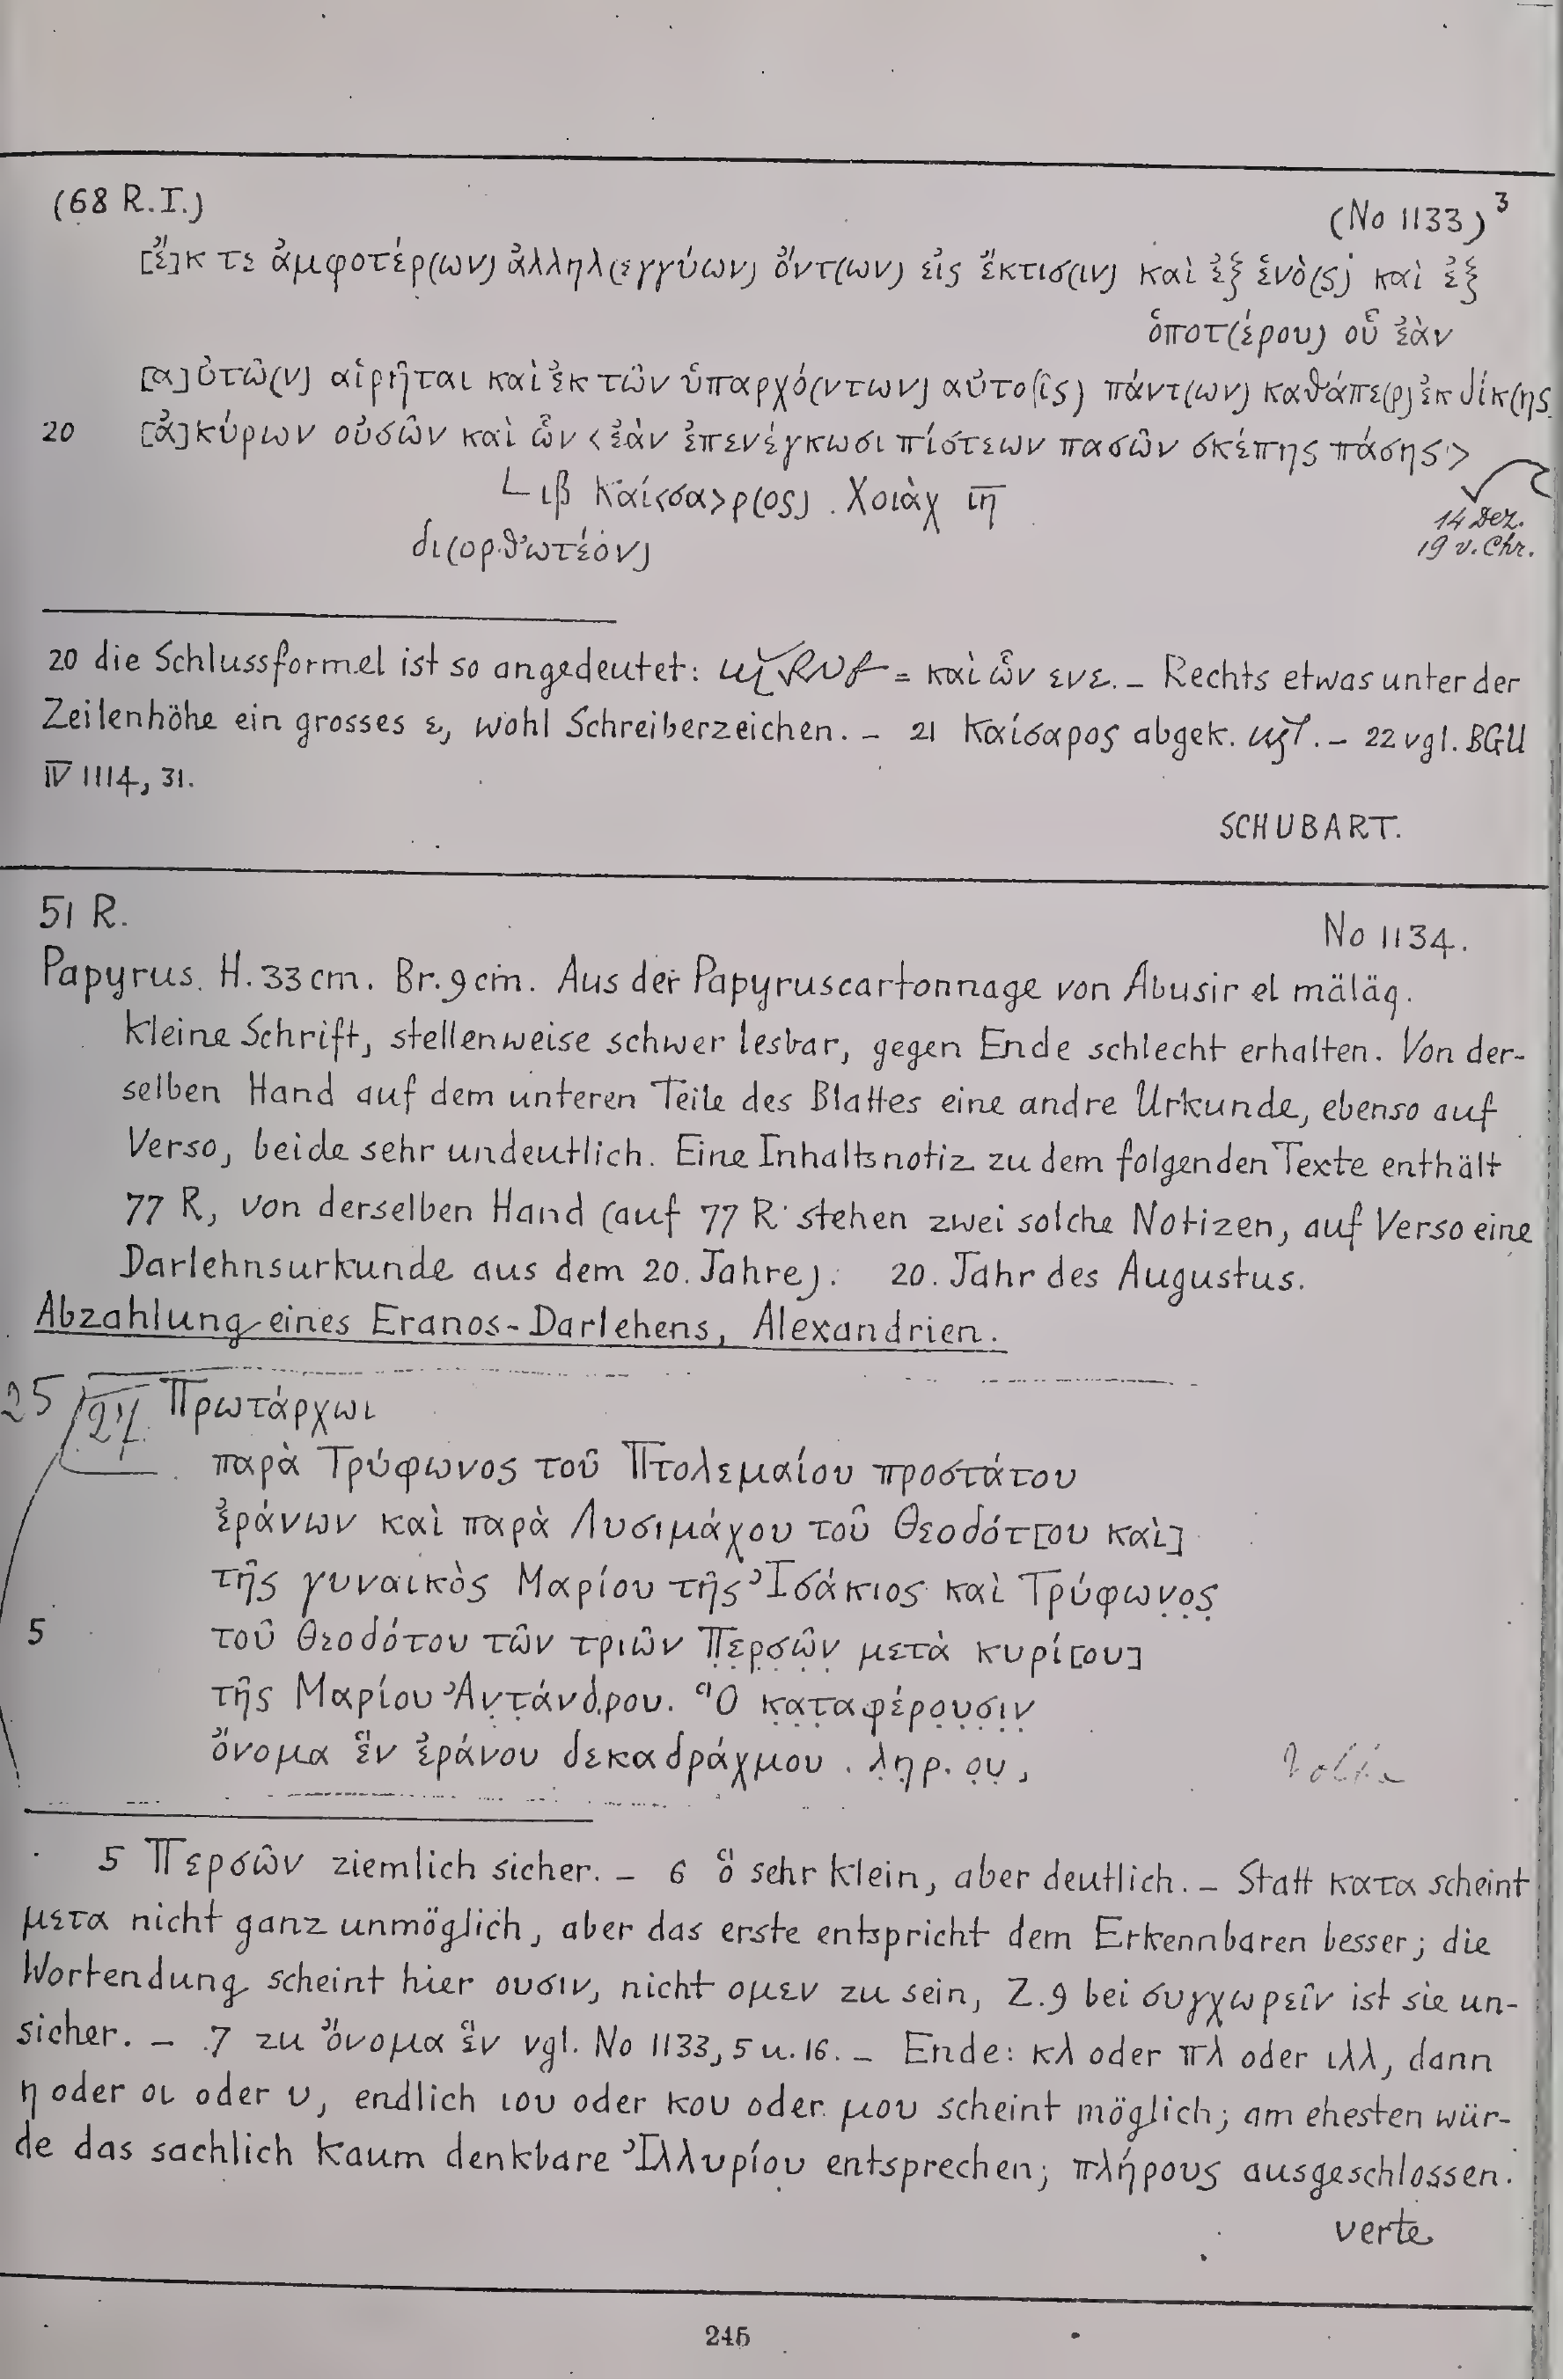 (68 R.I.)
(No 1133)³
[ἔ]κ τε ἀμφοτέρ(ων) ἀλληλ(εγγύων) ὄντ(ων) εἰς ἔκτισ(ιν) καὶ ἐξ ἑνὸ(ς) καὶ ἐξ
ὁποτ(έρου) οὗ ἐὰν
[α]ὐτῶ(ν) αἱρῆται καὶ ἐκ τῶν ὑπαρχό(ντων) αὐτο(ῖς) πάντ(ων) καθάπε(ρ) ἐκ δίκ(ης
20 [ἀ]κύρων οὐσῶν καὶ ὧν <ἐὰν ἐπενέγκωσι πίστεων πασῶν σκέπης πάσης>
L ιβ Καί<σα>ρ(ος). Χοιὰχ ι̅η̅
14 Dez.
19 v. Chr.
δι(ορθωτέον)
20 die Schlussformel ist so angedeutet: = καὶ ὧν ενε. – Rechts etwas unter der
Zeilenhöhe ein grosses ε, wohl Schreiberzeichen. – 21 Καίσαρος abgek. . – 22 vgl. BGU
IV 1114, 31.
SCHUBART.
51 R.
No 1134.
Papyrus. H. 33 cm. Br. 9 cm. Aus der Papyruscartonnage von Abusir el mäläq.
Kleine Schrift, stellenweise schwer lesbar, gegen Ende schlecht erhalten. Von der-
selben Hand auf dem unteren Teile des Blattes eine andre Urkunde, ebenso auf
Verso, beide sehr undeutlich. Eine Inhaltsnotiz zu dem folgenden Texte enthält
77 R, von derselben Hand (auf 77 R stehen zwei solche Notizen, auf Verso eine
Darlehnsurkunde aus dem 20. Jahre). 20. Jahr des Augustus.
Abzahlung eines Eranos-Darlehens, Alexandrien.
25 Πρωτάρχωι
παρὰ Τρύφωνος τοῦ Πτολεμαίου προστάτου
ἐράνων καὶ παρὰ Λυσιμάχου τοῦ Θεοδότ[ου καὶ]
τῆς γυναικὸς Μαρίου τῆς Ἰσάκιος καὶ Τρύφων̣ο̣ς̣
5 τοῦ Θεοδότου τῶν τριῶν Π̣ε̣ρ̣σ̣ῶ̣ν̣ μετὰ κυρί[ου]
τῆς Μαρίου Ἀν̣τ̣άνδ̣ρου. Ὃ κ̣α̣τ̣α̣φέρο̣υ̣σ̣ι̣ν̣
ὄνομα ἓν ἐράνου δεκαδράχμου . λ̣η̣ρ̣. ο̣υ̣,
5 Περσῶν ziemlich sicher. – 6 ὃ sehr klein, aber deutlich. – Statt κατα scheint
μετα nicht ganz unmöglich, aber das erste entspricht dem Erkennbaren besser; die
Wortendung scheint hier ουσιν, nicht ομεν zu sein, Z. 9 bei συγχωρεῖν ist sie un-
sicher. – 7 zu ὄνομα ἓν vgl. No 1133, 5 u. 16. – Ende: κλ oder πλ oder ιλλ, dann
η oder οι oder υ, endlich ιου oder κου oder μου scheint möglich; am ehesten wür-
de das sachlich kaum denkbare Ἰλλυρίου entsprechen; πλήρους ausgeschlossen.
verte
245